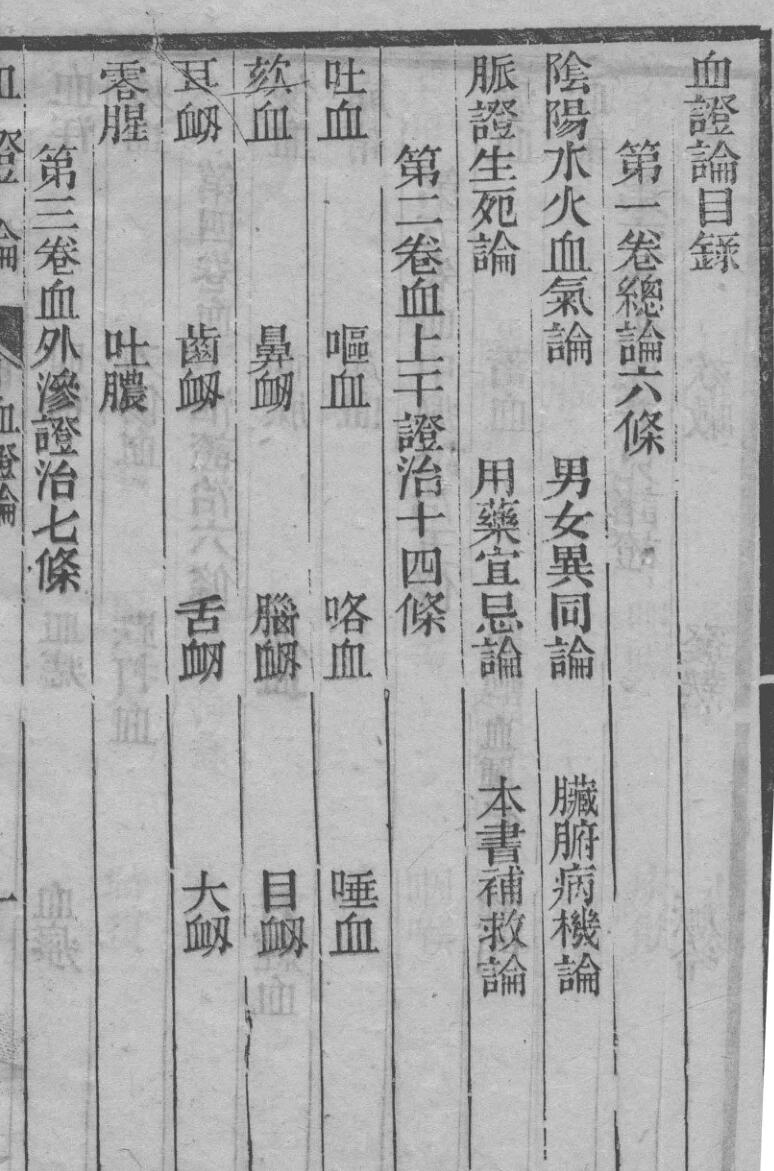 血證論目錄
第一卷總論六條
陰陽水火血氣論 男女異同論 臟腑病機論
脈證生死論 用藥宜忌論 本書補救論
第二卷血上干證治十四條
吐血 嘔血 咯血 唾血
欬血 鼻衂 腦衂 目衂
耳衂 齒衂 舌衂 大衂
零腥 吐膿
第三卷血外滲證治七條
血證論 血證論 一